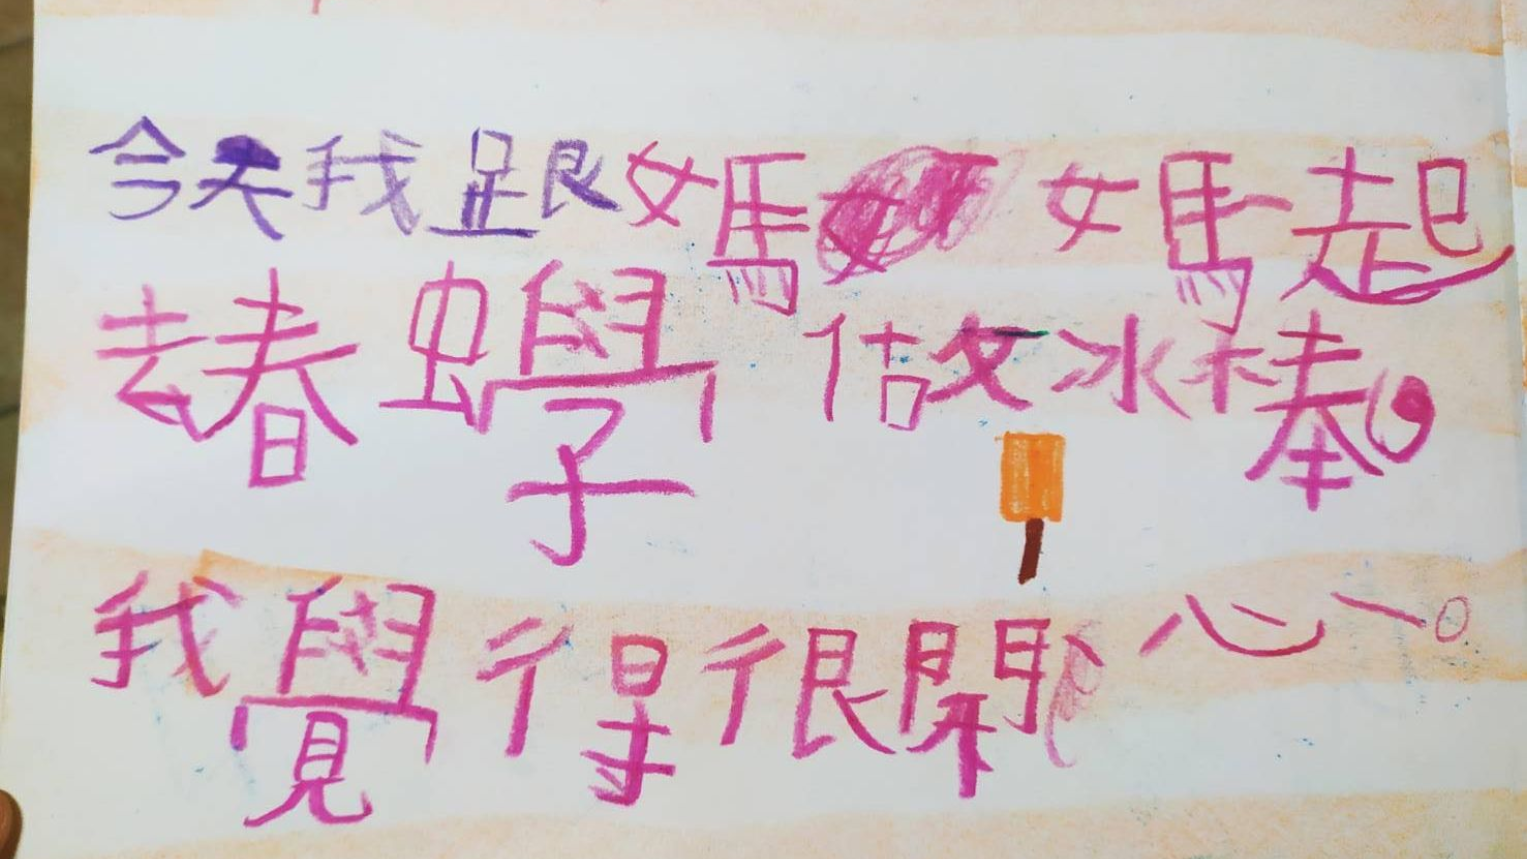 今天我跟媽媽一起
去春虫學做冰棒，
我覺得很開心。